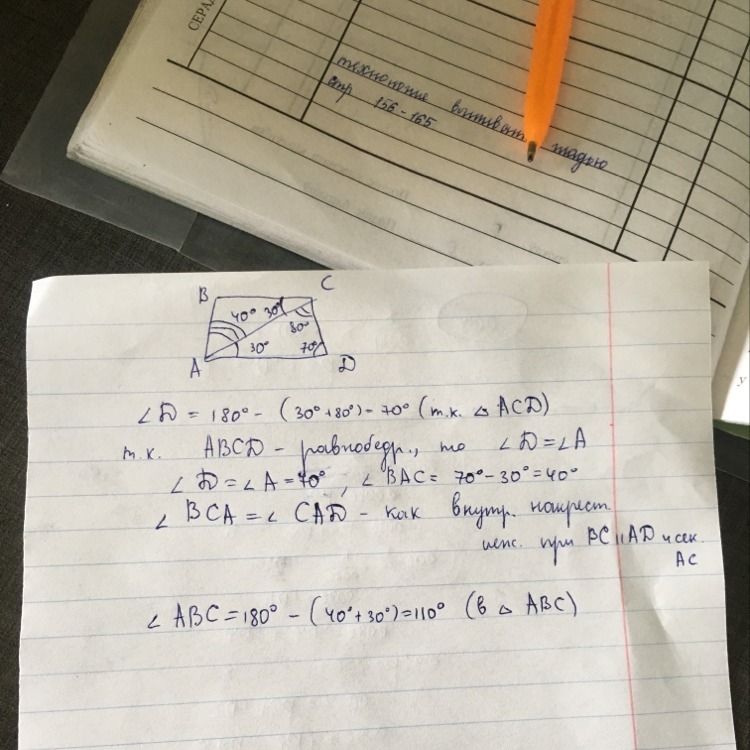 СЕРДА
стр 156-165
B
C
40° 30°
80°
30°
70°
A
D
∠D = 180° - (30°+80°) = 70° (т.к. △ ACD)
т.к. ABCD - равнобедр., то ∠D=∠A
∠D=∠A=70°, ∠BAC= 70°-30°=40°
∠BCA=∠CAD - как внутр. накрест
при BC||AD и сек.
AC
∠ABC=180° - (40°+30°)=110° (в △ ABC)